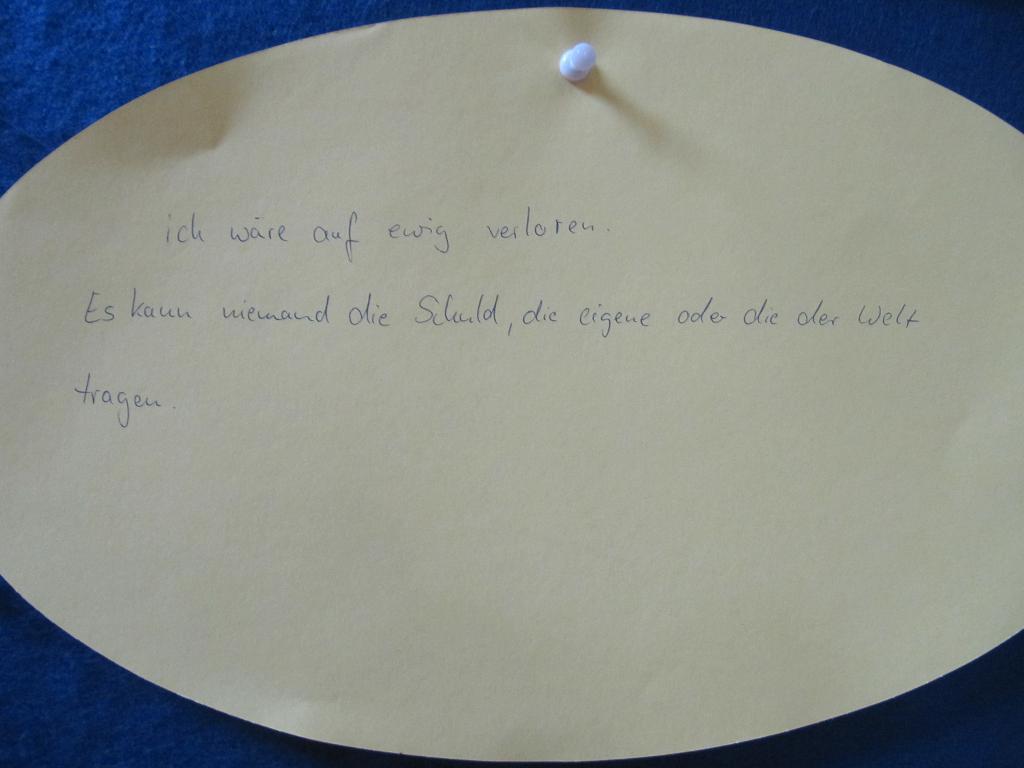 ich wäre auf ewig verloren.
Es kann niemand die Schuld, die eigene oder die der Welt
tragen.